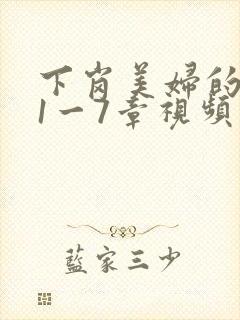 下岗美婦的
1一7章視頻
藍家三少